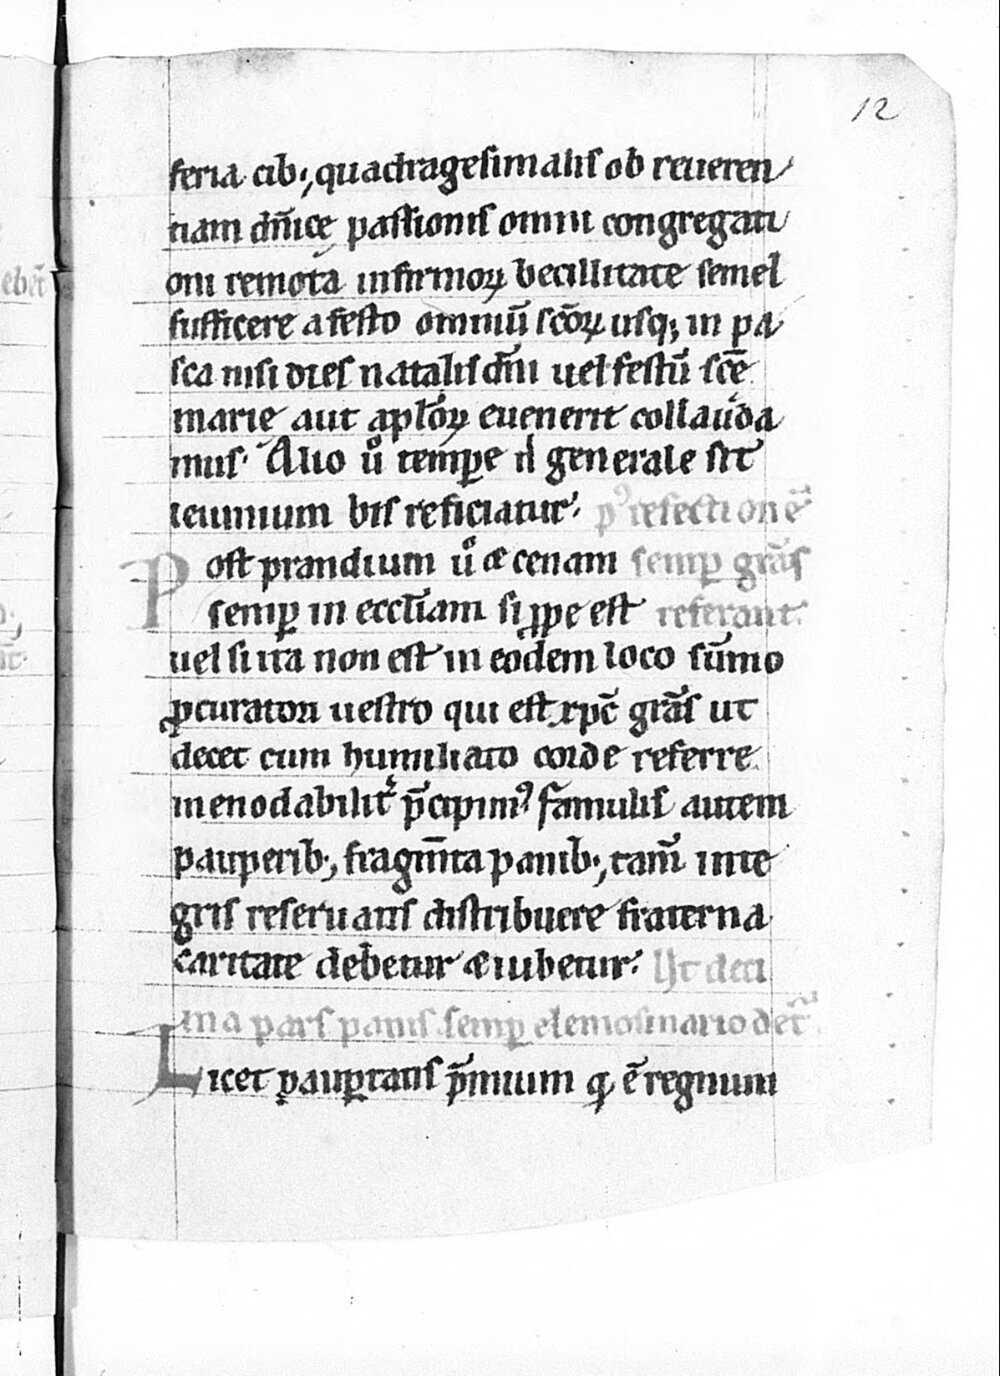 12
feria cib; quadragesimalis ob reueren
tiam dn̄icę passionis omni congregati
oni remota infirmoꝝ becillitate semel
sufficere a festo omniū sc̄oꝝ usq; in pa
sca nisi dies natalis dn̄i uel festū sc̄e
marie aut apl̄oꝝ euenerit collauda
mus. Alio uͦ tempe n̄ generale sit
ieiunium bis reficiatur. pꝰ refectionē
Post prandium uͦ & cenam semꝑ grā̄s
semꝑ in eccl̄iam si ꝓpe est referant.
uel si ita non est in eodem loco sūmo
ꝓcuratori uestro qui est xp̄c grā̄s ut
decet cum humiliato corde referre
inenodabilit̄ p̄cipimꝰ famulis autem
pauperib; fragm̄ta panib; tam̄ inte
gris reseruatis distribuere fraterna
caritate debetur & iubetur. Ut deci
ma pars panis semꝑ elemosinario det̄
Licet pauꝑtatis p̄mium qͥ ē regnum